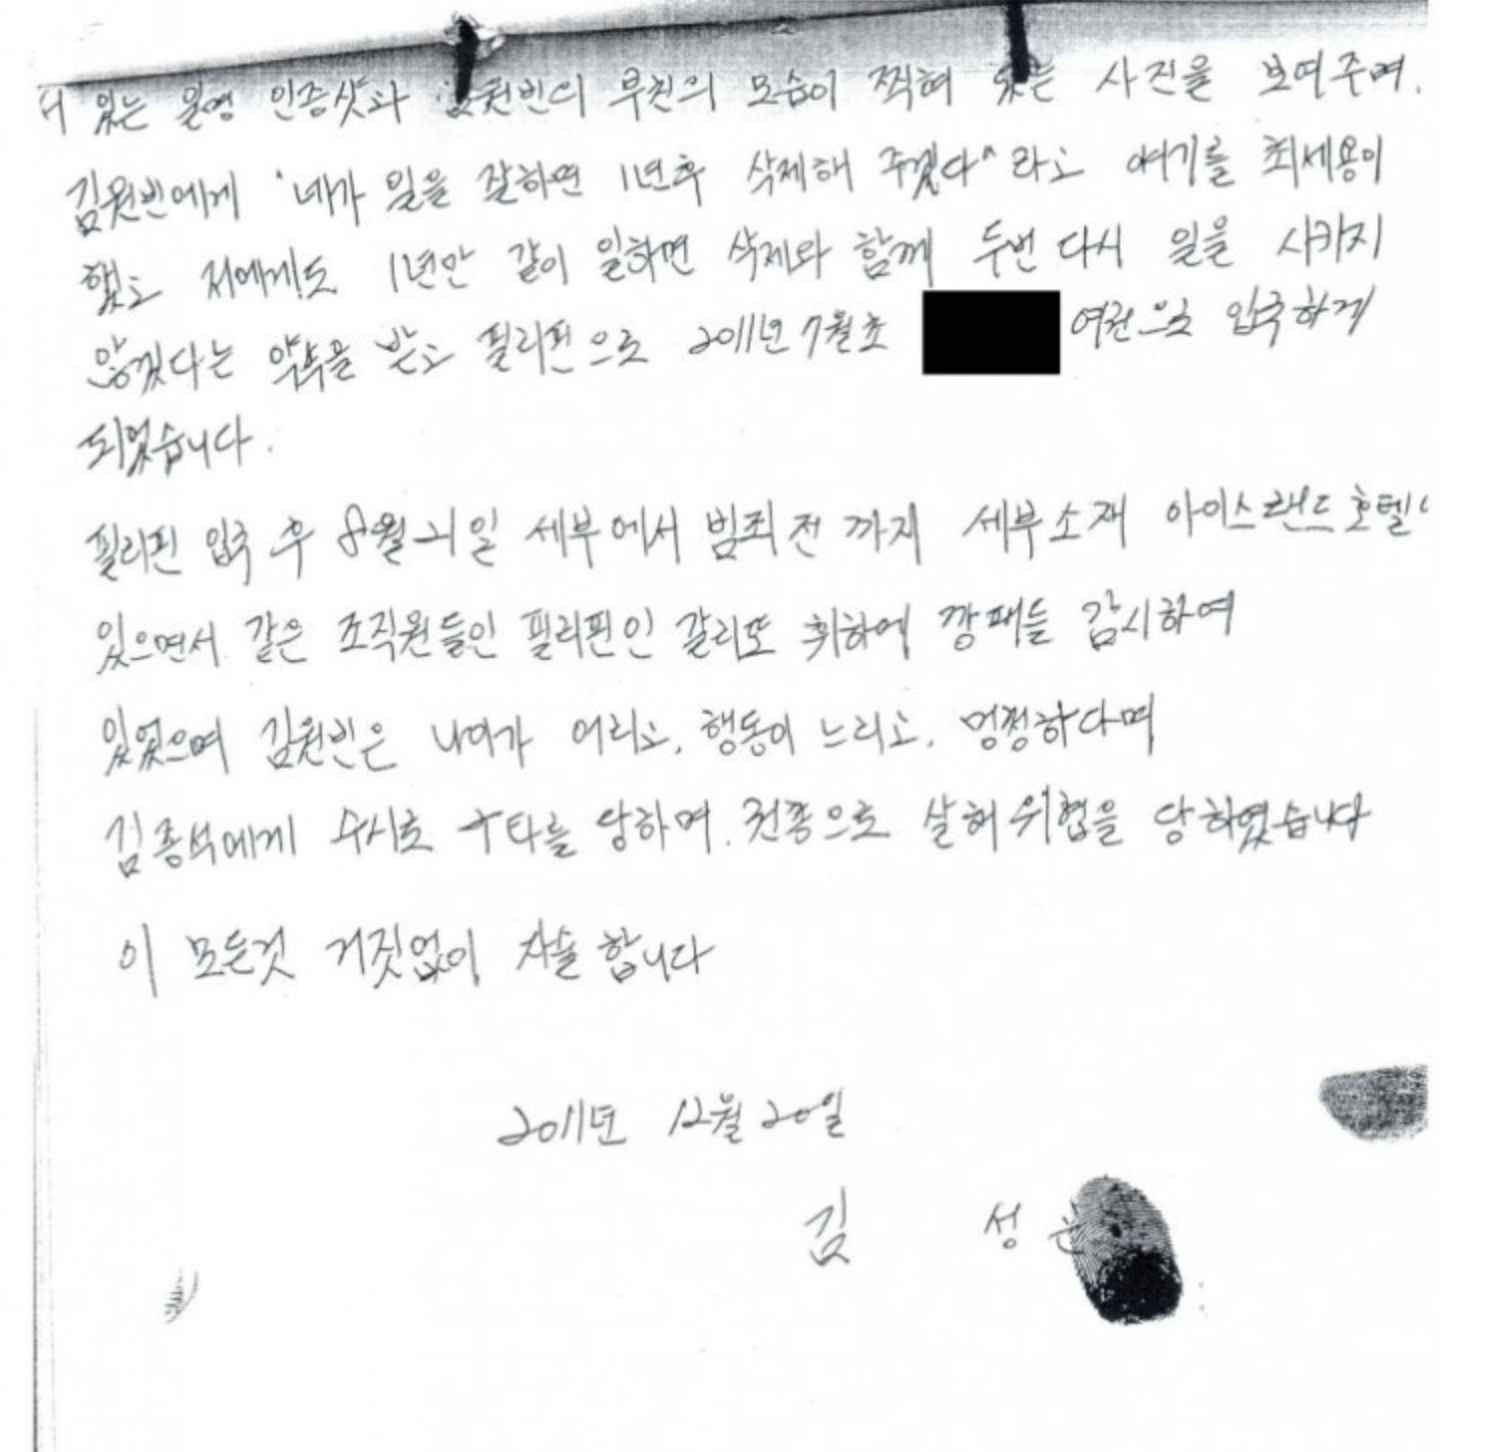 있는 일명 인증샷과 김원빈의 부친의 모습이 찍혀 있는 사진을 보여주며.
김원빈에게 "네가 일을 잘하면 1년후 삭제해 주겠다" 라고 얘기를 최세용이
했고 저에게도 1년만 같이 일하면 삭제와 함께 두번 다시 일을 시키지
않겠다는 약속을 받고 필리핀으로 2011년 7월초 여권으로 입국하게
되었습니다.
필리핀 입국 후 8월 21일 세부에서 범죄 전 까지 세부소재 아이스랜드 호텔
있으면서 같은 조직원들인 필리핀인 갈리또 휘하에 깡패들 감시하여
있었으며 김원빈은 나이가 어리고, 행동이 느리고, 멍청하다며
김종석에게 수시로 구타를 당하며. 권총으로 살해위협을 당하였습니다
이 모든것 거짓없이 자술 합니다
2011년 12월 20일
김 성